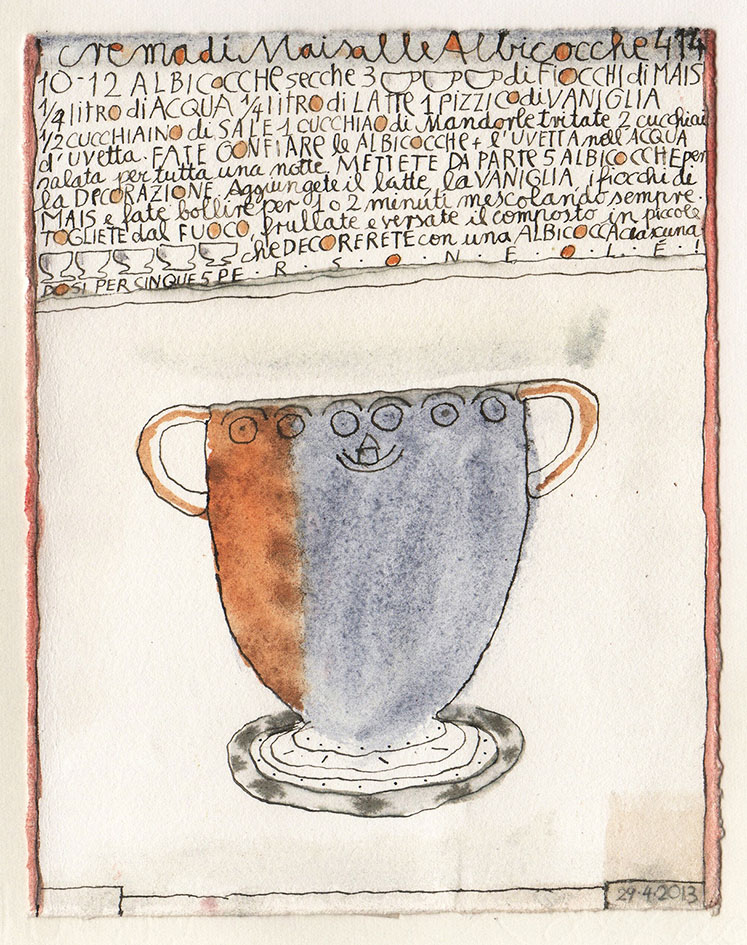 cremadi Maisalle Albicocche 414
10-12 ALBICOCCHE secche 3 di FIOCCHI di MAIS
1/4 litro di ACQUA 1/4 litro di LATTE 1 PIZZICO di VANIGLIA
1/2 CUCCHIAINO di SALE 1 CUCCHIAO di Mandorle tritate 2 cucchiai
d'uvetta. FATE GONFIARE le ALBICOCCHE + l'UVETTA nell'ACQUA
salata per tutta una notte. METTETE DA PARTE 5 ALBICOCCHE per
la DECORAZIONE. Aggiungete il latte, la VANIGLIA, i fiocchi de
MAIS e fate bollire per 1 o 2 minuti mescolando sempre.
TOGLIETE dal FUOCO, frullate e versate il composto in piccole
che DECORERETE con una ALBICOCCA ciascuna
DOSI PER CINQUE 5 PE . R . S . O . N . E . O . L . É . !
29·4·2013